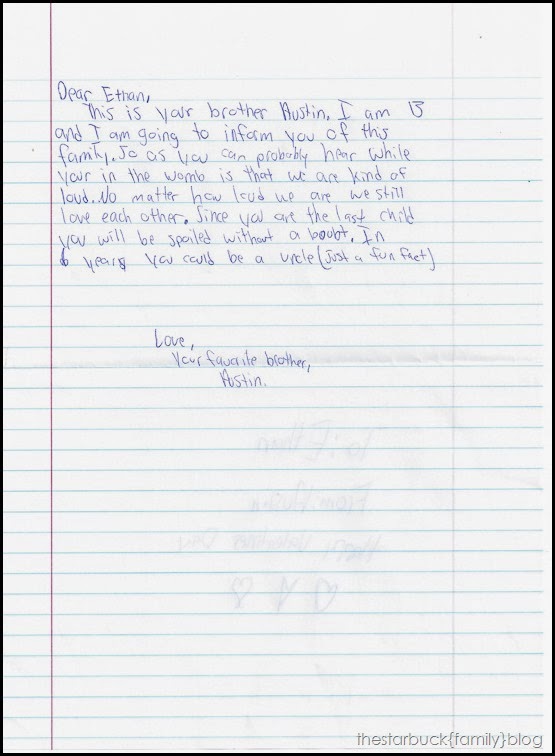 Dear Ethan,
This is your brother Austin. I am 13
and I am going to inform you of this
family. So as you can probably hear while
your in the womb is that we are kind of
loud..No matter how loud we are we still
love each other. Since you are the last child
you will be spoiled without a boubt. In
6 years you could be a uncle (just a fun fact)
Love,
Your favorite brother,
Austin.
To: Ethan
From: Austin
Happy Valentines Day
thestarbuck{family}blog